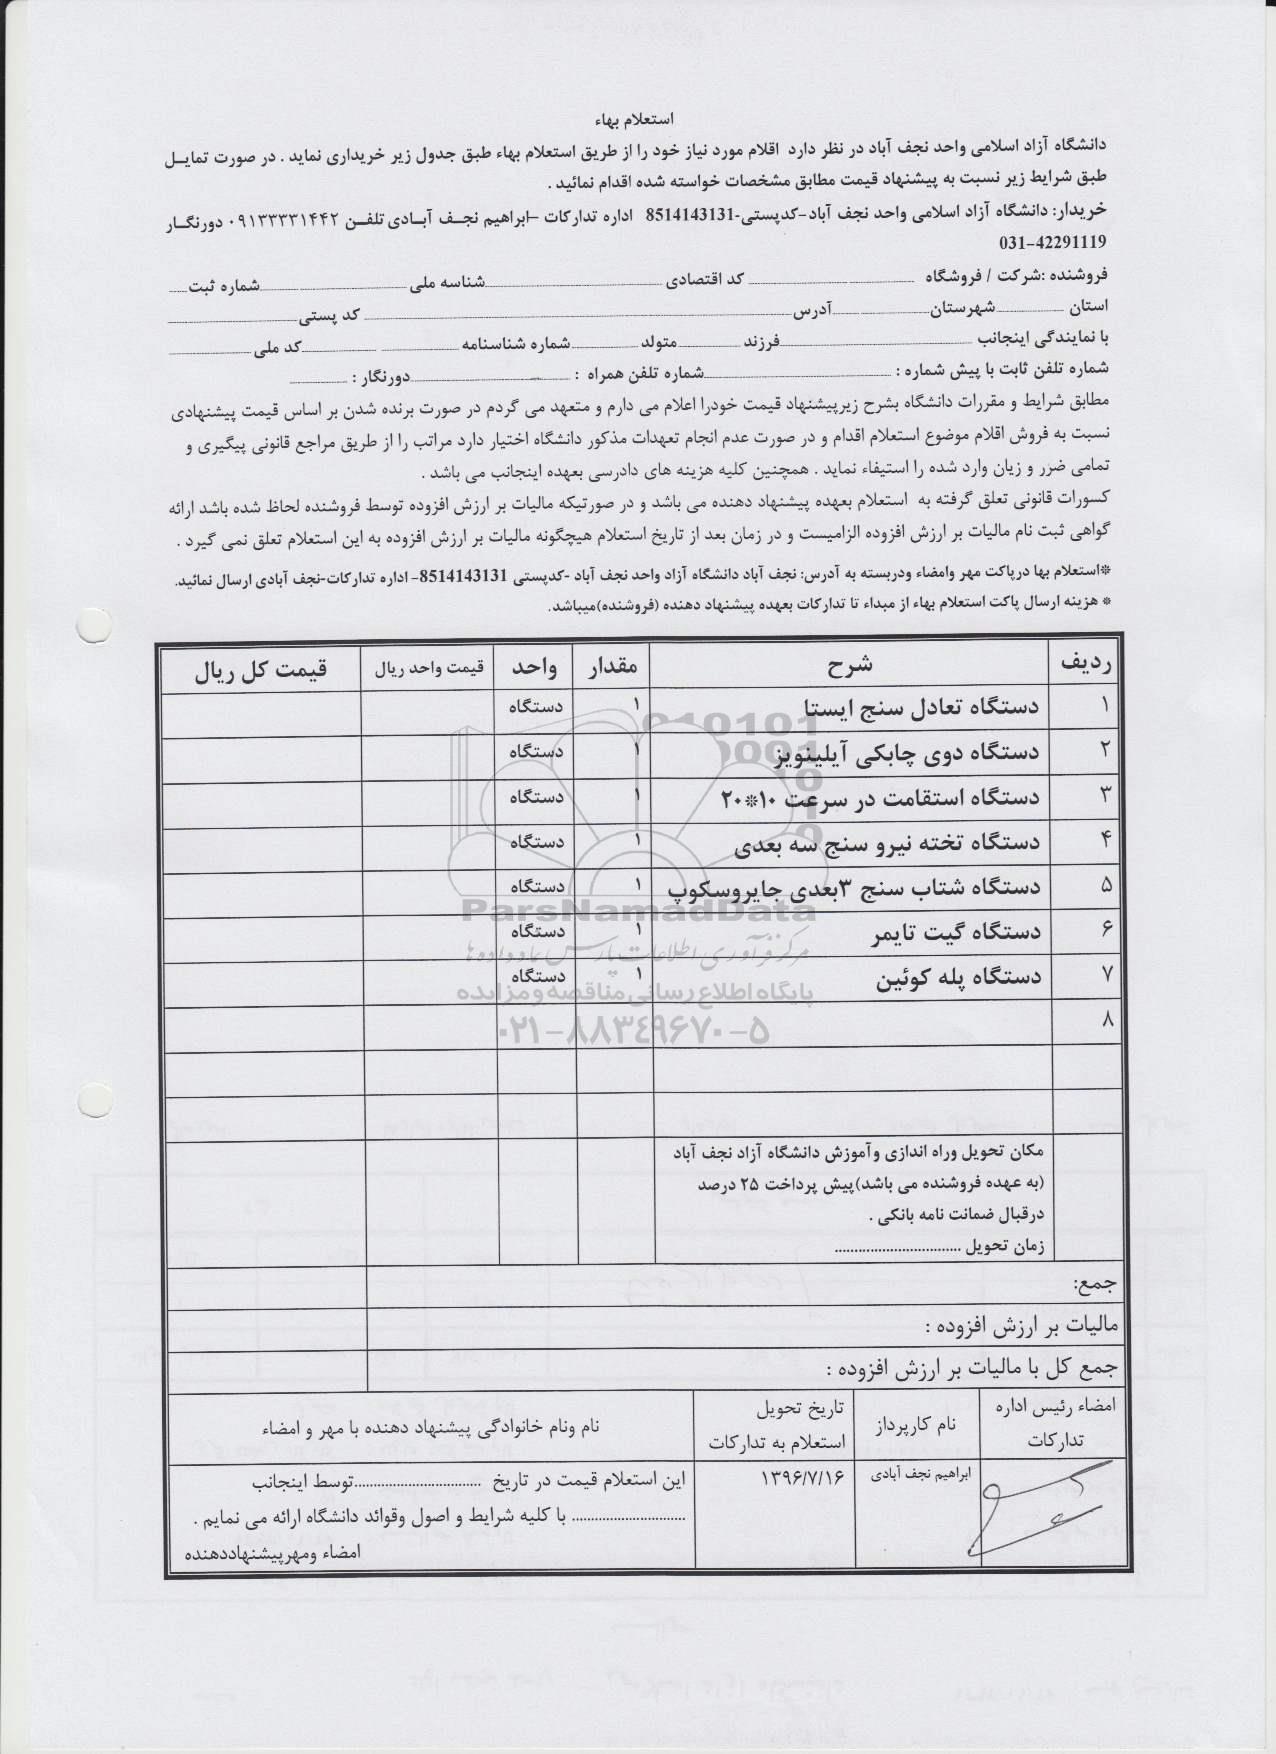 استعلام بهاء
دانشگاه آزاد اسلامی واحد نجف آباد در نظر دارد اقلام مورد نیاز خود را از طریق استعلام بهاء طبق جدول زیر خریداری نماید . در صورت تمایل
طبق شرایط زیر نسبت به پیشنهاد قیمت مطابق مشخصات خواسته شده اقدام نمائید .
خریدار: دانشگاه آزاد اسلامی واحد نجف آباد-کدپستی-8514143131 اداره تدارکات –ابراهیم نجف آبادی تلفن ۰۹۱۳۳۳۳۱۴۴۲ دورنگار
031-42291119
فروشنده :شرکت / فروشگاه ........ کد اقتصادی ........ شناسه ملی ........ شماره ثبت ....
استان ........ شهرستان ........ آدرس ........ کد پستی ........
با نمایندگی اینجانب ........ فرزند ........ متولد ........ شماره شناسنامه ........ کد ملی ........
شماره تلفن ثابت با پیش شماره : ........ شماره تلفن همراه : ........ دورنگار : ........
مطابق شرایط و مقررات دانشگاه بشرح زیرپیشنهاد قیمت خودرا اعلام می دارم و متعهد می گردم در صورت برنده شدن بر اساس قیمت پیشنهادی
نسبت به فروش اقلام موضوع استعلام اقدام و در صورت عدم انجام تعهدات مذکور دانشگاه اختیار دارد مراتب را از طریق مراجع قانونی پیگیری و
تمامی ضرر و زیان وارد شده را استیفاء نماید . همچنین کلیه هزینه های دادرسی بعهده اینجانب می باشد .
کسورات قانونی تعلق گرفته به استعلام بعهده پیشنهاد دهنده می باشد و در صورتیکه مالیات بر ارزش افزوده توسط فروشنده لحاظ شده باشد ارائه
گواهی ثبت نام مالیات بر ارزش افزوده الزامیست و در زمان بعد از تاریخ استعلام هیچگونه مالیات بر ارزش افزوده به این استعلام تعلق نمی گیرد .
*استعلام بها درپاکت مهر وامضاء ودربسته به آدرس: نجف آباد دانشگاه آزاد واحد نجف آباد -کدپستی 8514143131- اداره تدارکات-نجف آبادی ارسال نمائید.
* هزینه ارسال پاکت استعلام بهاء از مبداء تا تدارکات بعهده پیشنهاد دهنده (فروشنده)میباشد.
ردیف شرح مقدار واحد قیمت واحد ریال قیمت کل ریال
۱ دستگاه تعادل سنج ایستا ۱ دستگاه
۲ دستگاه دوی چابکی آیلینویز ۱ دستگاه
۳ دستگاه استقامت در سرعت ۱۰*۲۰ ۱ دستگاه
۴ دستگاه تخته نیرو سنج سه بعدی ۱ دستگاه
۵ دستگاه شتاب سنج ۳بعدی جایروسکوپ ۱ دستگاه
ParsNamadData
۶ دستگاه گیت تایمر ۱ دستگاه
مرکز فرآوری اطلاعات پارس نماد داده ها
۷ دستگاه پله کوئین ۱ دستگاه
پایگاه اطلاع رسانی مناقصه و مزایده
۸
۰۲۱-۸۸۳۴۹۶۷۰-۵
مکان تحویل وراه اندازی وآموزش دانشگاه آزاد نجف آباد
(به عهده فروشنده می باشد)پیش پرداخت ۲۵ درصد
درقبال ضمانت نامه بانکی .
زمان تحویل ................................
جمع:
مالیات بر ارزش افزوده :
جمع کل با مالیات بر ارزش افزوده :
امضاء رئیس اداره تدارکات
نام کارپرداز
تاریخ تحویل استعلام به تدارکات
نام ونام خانوادگی پیشنهاد دهنده با مهر و امضاء
ابراهیم نجف آبادی
۱۳۹۶/۷/۱۶
این استعلام قیمت در تاریخ ................................توسط اینجانب
............................. با کلیه شرایط و اصول وقوائد دانشگاه ارائه می نمایم .
امضاء ومهرپیشنهاددهنده